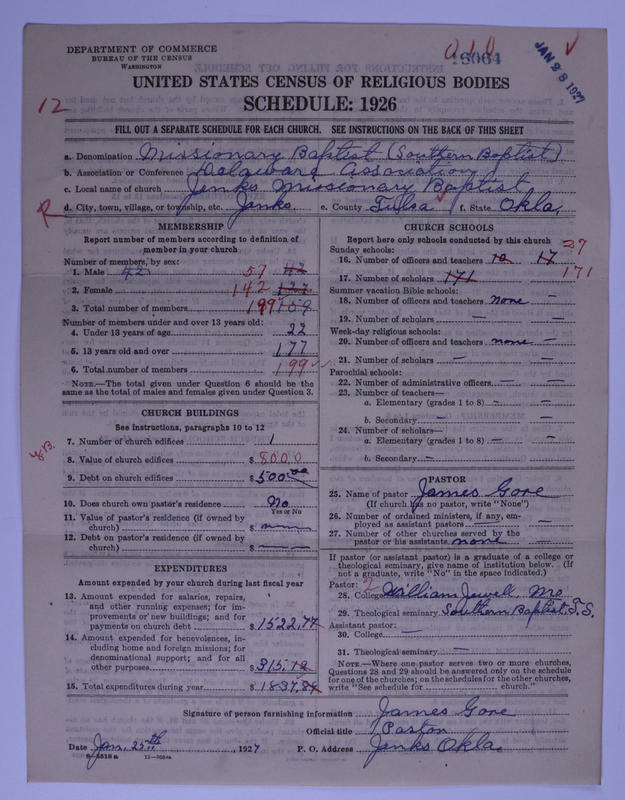 DEPARTMENT OF COMMERCE
BUREAU OF THE CENSUS
WASHINGTON
16064
JAN 28 1927
UNITED STATES CENSUS OF RELIGIOUS BODIES
SCHEDULE: 1926
12
FILL OUT A SEPARATE SCHEDULE FOR EACH CHURCH. SEE INSTRUCTIONS ON THE BACK OF THIS SHEET
a. Denomination Missionary Baptist (Southern Baptist)
b. Association or Conference Delaware Association
c. Local name of church Jenks Missionary Baptist
R d. City, town, village, or township, etc. Jenks. e. County Tulsa f. State Okla.
MEMBERSHIP
Report number of members according to definition of
member in your church
Number of members, by sex:
1. Male 42 57 42
2. Female 142 127
3. Total number of members 199 169
Number of members under and over 13 years old:
4. Under 13 years of age 22
5. 13 years old and over 177
6. Total number of members 199
NOTE.—The total given under Question 6 should be the
same as the total of males and females given under Question 3.
CHURCH BUILDINGS
See instructions, paragraphs 10 to 12
7. Number of church edifices 1
8. Value of church edifices $ 8000
9. Debt on church edifices $ 500.00
10. Does church own pastor's residence? No
Yes or No
11. Value of pastor's residence (if owned by
church) $
12. Debt on pastor's residence (if owned by
church) $
EXPENDITURES
Amount expended by your church during last fiscal year
13. Amount expended for salaries, repairs,
and other running expenses; for im-
provements or new buildings; and for
payments on church debt $ 1522.77
14. Amount expended for benevolences, in-
cluding home and foreign missions; for
denominational support; and for all
other purposes $ 315.12
15. Total expenditures during year $ 1837.89
CHURCH SCHOOLS
Report here only schools conducted by this church
Sunday schools: 27
16. Number of officers and teachers 10 17
17. Number of scholars 171 171
Summer vacation Bible schools:
18. Number of officers and teachers none —
19. Number of scholars — —
Week-day religious schools:
20. Number of officers and teachers none —
21. Number of scholars — —
Parochial schools:
22. Number of administrative officers — —
23. Number of teachers—
a. Elementary (grades 1 to 8) — —
b. Secondary — —
24. Number of scholars—
a. Elementary (grades 1 to 8) — —
b. Secondary —
PASTOR
25. Name of pastor James Gore
(If church has no pastor, write "None")
26. Number of ordained ministers, if any, em-
ployed as assistant pastors — —
27. Number of other churches served by the
pastor or his assistants none —
If pastor (or assistant pastor) is a graduate of a college or
theological seminary, give name of institution below. (If
not a graduate, write "No" in the space indicated.)
Pastor: 2
28. College William Jewell, Mo
29. Theological seminary Southern Baptist T. S.
Assistant pastor:
30. College —
31. Theological seminary —
NOTE.—Where one pastor serves two or more churches,
Questions 28 and 29 should be answered only on the schedule
for one of the churches; on the schedules for the other churches,
write "See schedule for church."
Signature of person furnishing information James Gore
Official title Pastor
Date Jan. 25th, 1927 P. O. Address Jenks Okla.